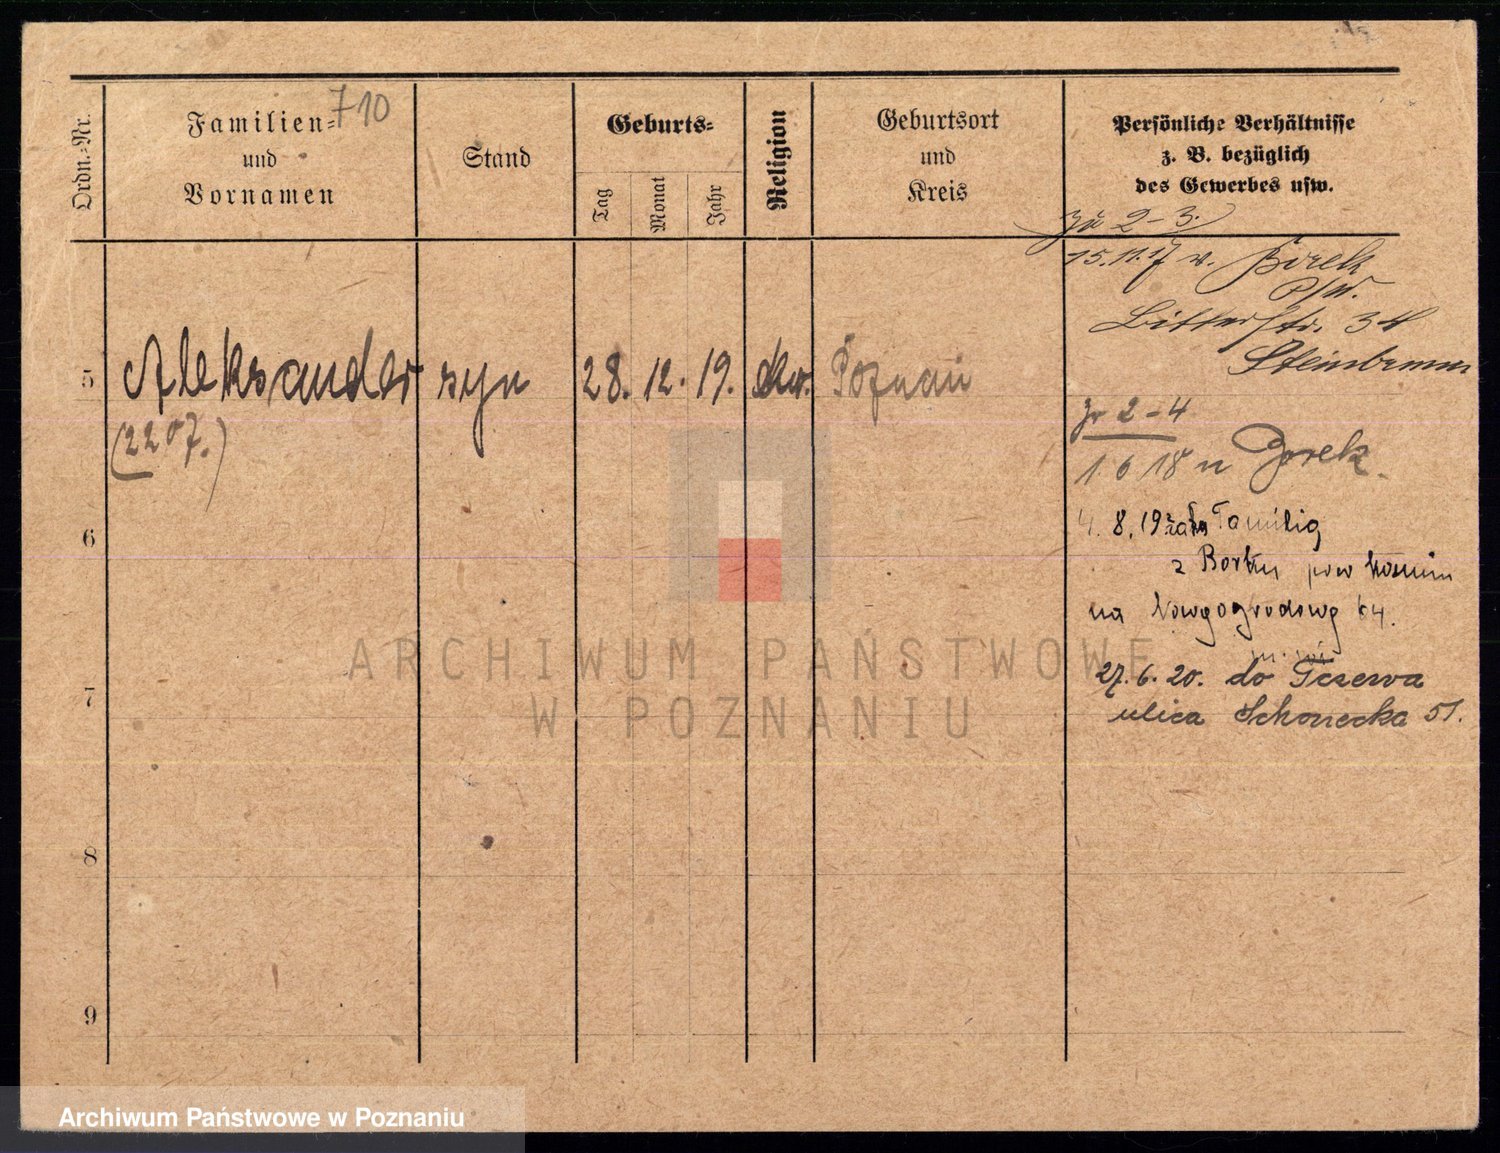 710
Ordn.-Nr.
Familien-
und
Vornamen
Stand
Geburts-
Tag
Monat
Jahr
Religion
Geburtsort
und
Kreis
Persönliche Verhältnisse
z. B. bezüglich
des Gewerbes usw.
Zu 2-3.
15.11.17 n. Borek
P/W.
34
5 Aleksander syn 28. 12. 19. Poznań
(2207.)
Zu 2-4
1. 6 18 n Borek
4. 8. 19 Familią
z Borku pow
na Nowogrodową 64.
27. 6. 20. do Tczewa
ulica Schonecka 51.
6
7
8
9
ARCHIWUM PAŃSTWOWE
W POZNANIU
Archiwum Państwowe w Poznaniu